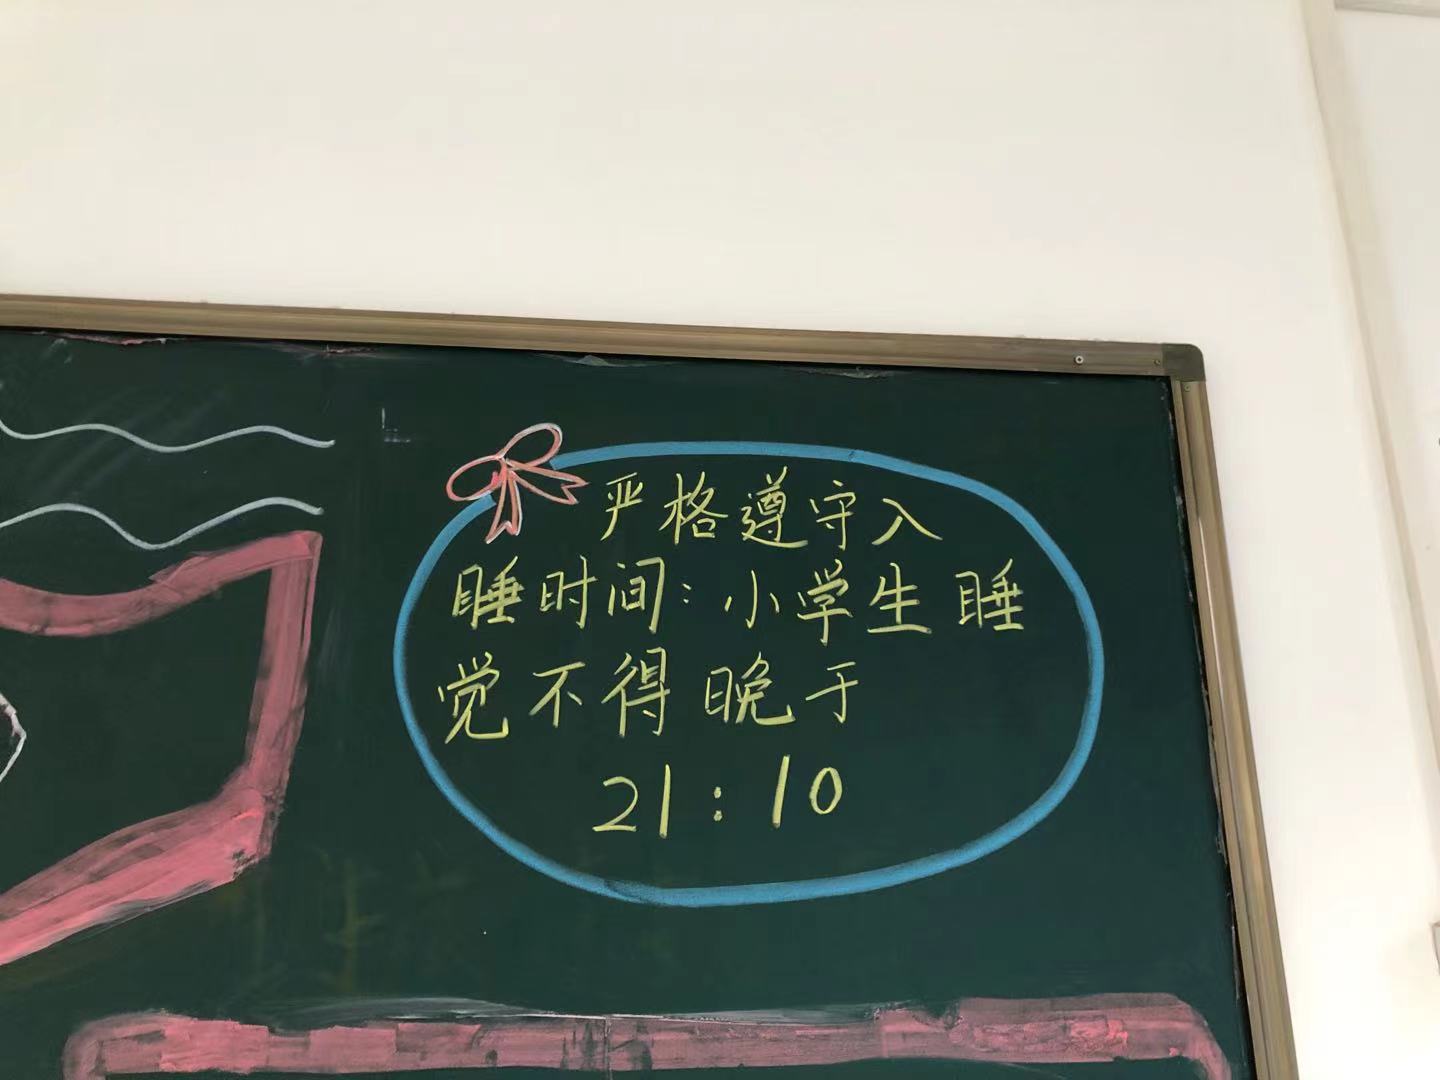 严格遵守入
睡时间:小学生睡
觉不得晚于
21:10